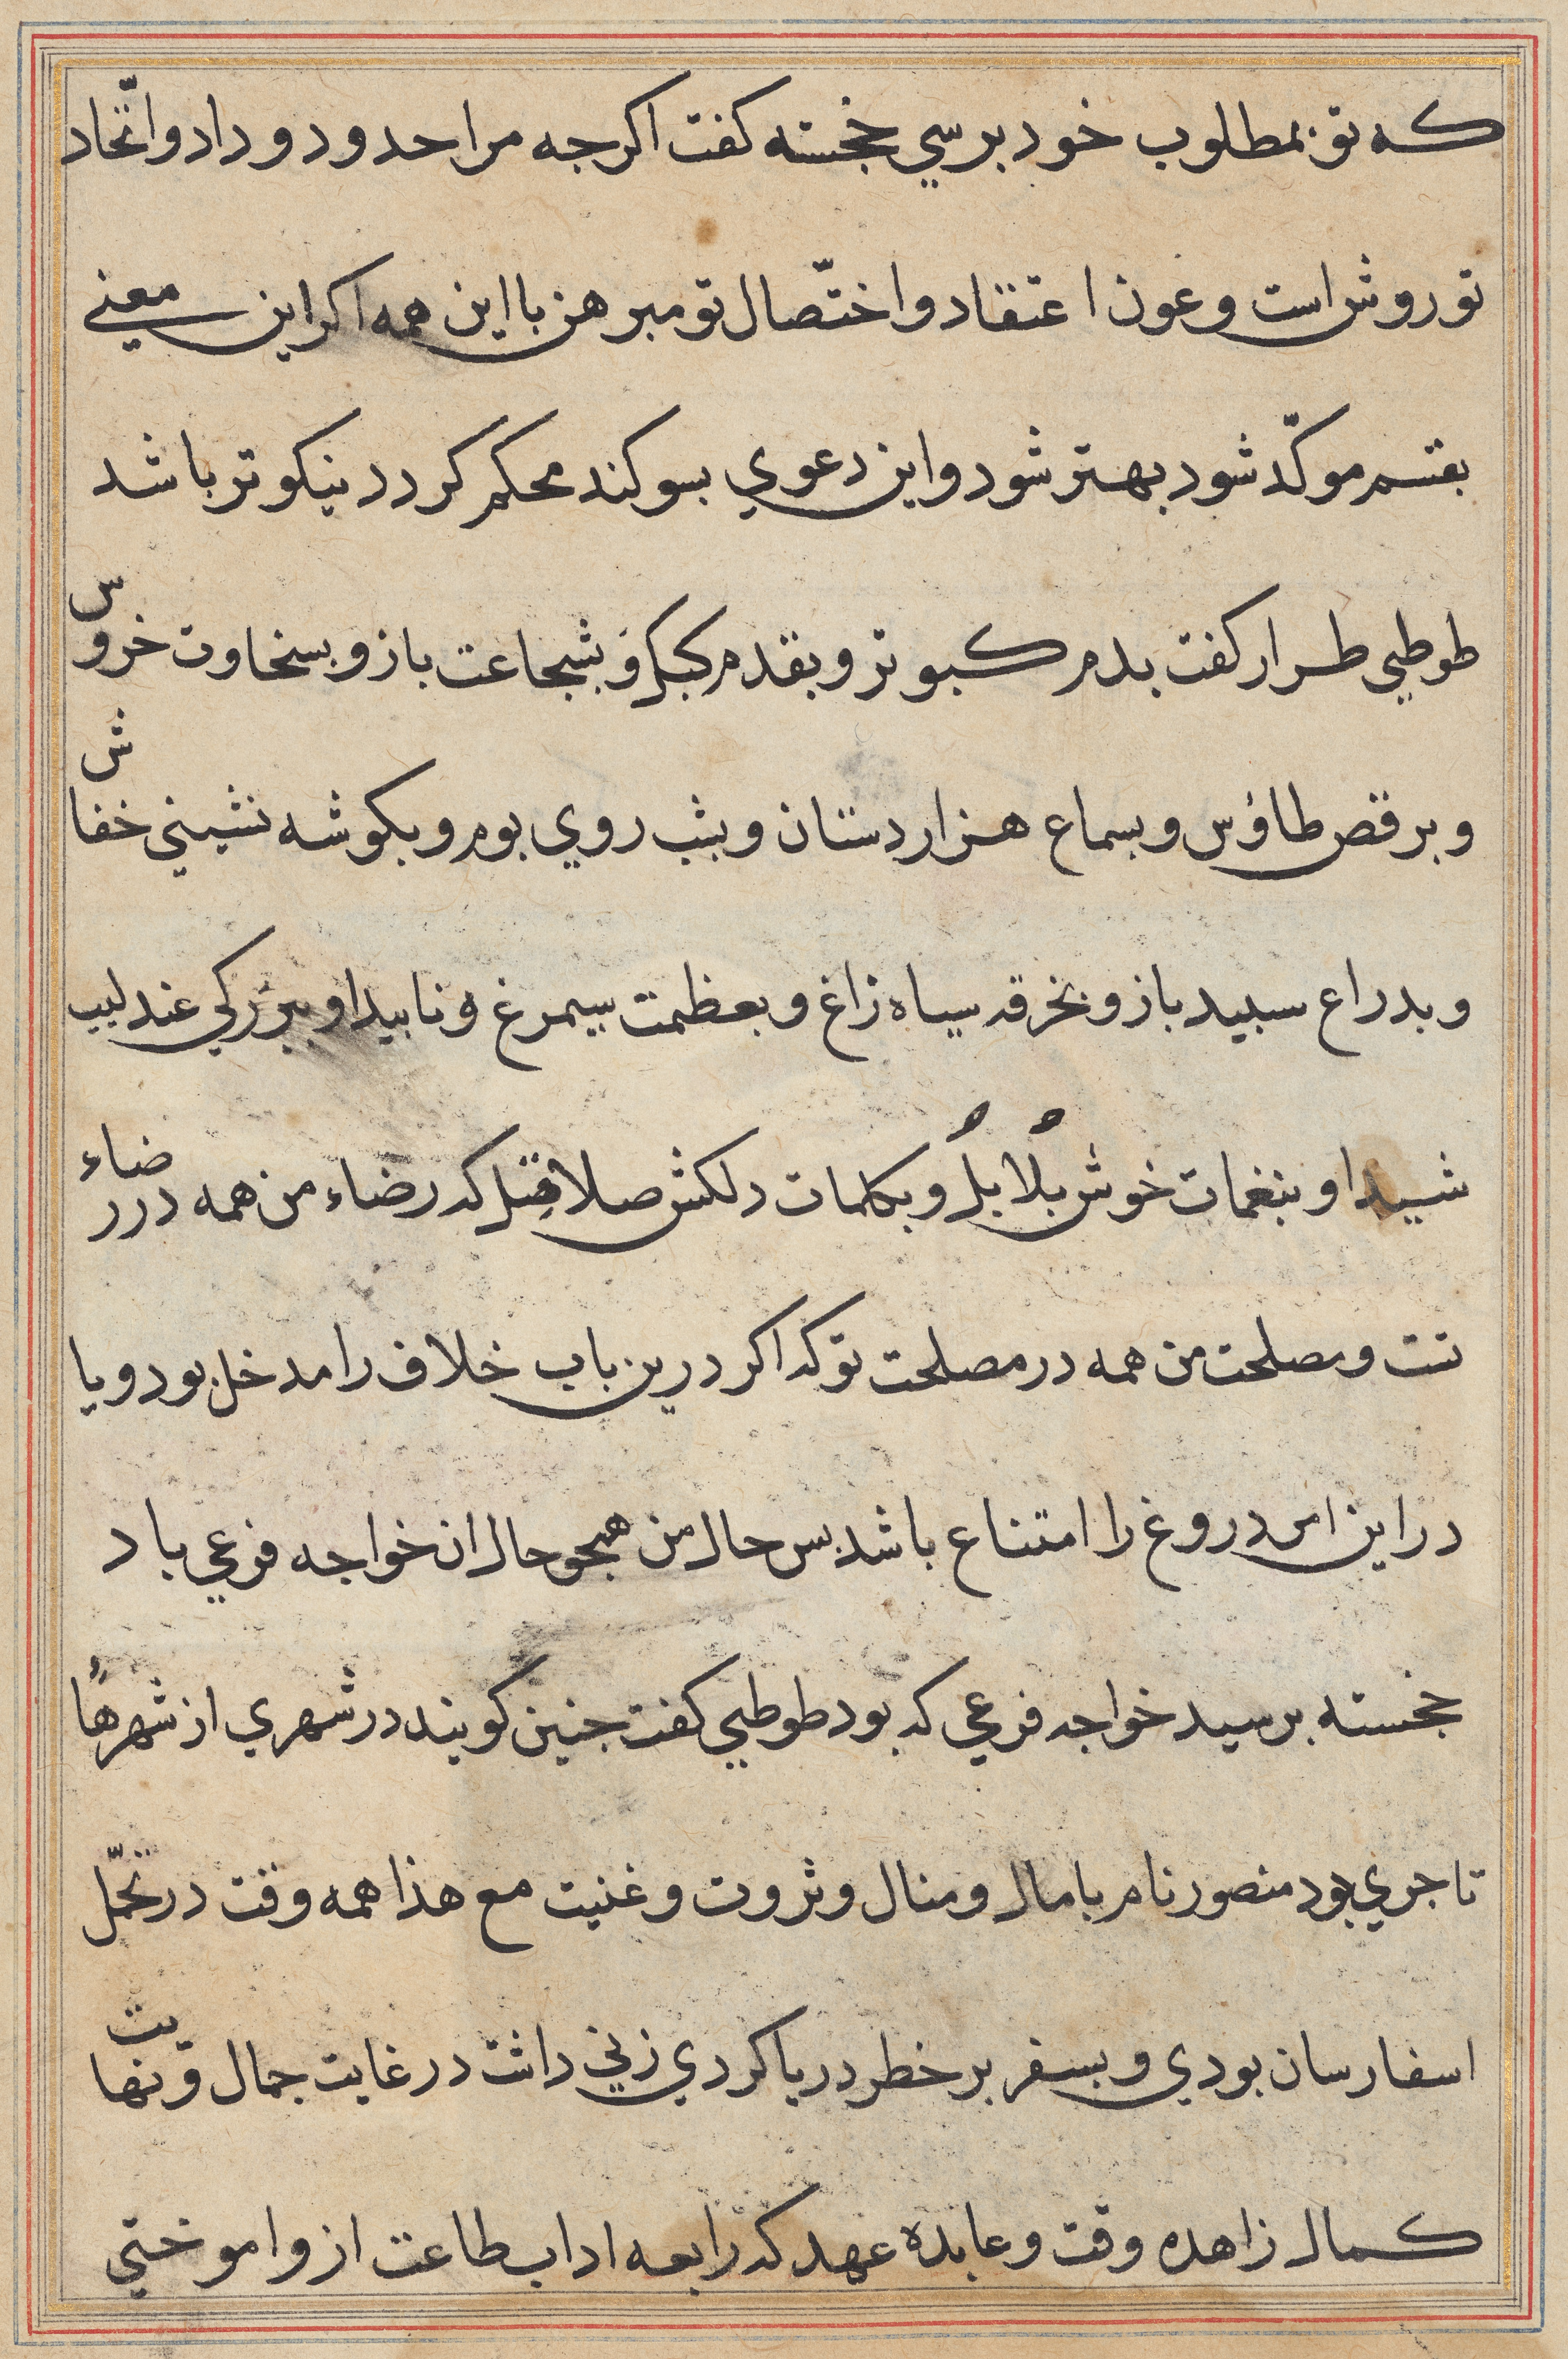 که تو بمطلوب خود برسي خجسته کفت اکرجه مرا حدود وداد واتّحاد
تو روشن است وغون اعتقاد واختّصال تو مبرهن با این همه اکر این معني
بقسم موکّد شود بهتر شود واین دعوي بسوکند محکم کردد نیکوتر باشد
طوطي طرار کفت بدم کبوتر وبقدم کبک وبشجاعت باز وبسخاوت خروس
وبرقص طاؤس وبسماع هزاردستان وبشب روي بوم وبکوشه نشیني خفاش
وبدراع سبید باز وبخرقه سیاه زاغ وبعظمت سیمرغ وناپیدا وببزرکي عندلیب
شیدا وبنغمات خوش بُلابُل وبکلمات دلکش صلاصل که رضاء من همه در رضاء
تست ومصلحت من همه در مصلحت تو که اکر درین باب خلاف را مدخل بود ویا
در این امر دروغ را امتناع باشد بس حال من همجو حال ان خواجه فرعي باد
خجسته برسید خواجه فرعي که بود طوطي کفت جنین کویند در شهري از شهرها
تاجري بود منصور نام با مال ومنال وثروت وغنیت مع هذا همه وقت در تحمّل
اسفار سان بودي وبسفر بر خطر دریا کردي زني داشت در غایت جمال ونهایت
کمال زاهده وقت وعابده عهد که رابعه اداب طاعت ازو اموختي